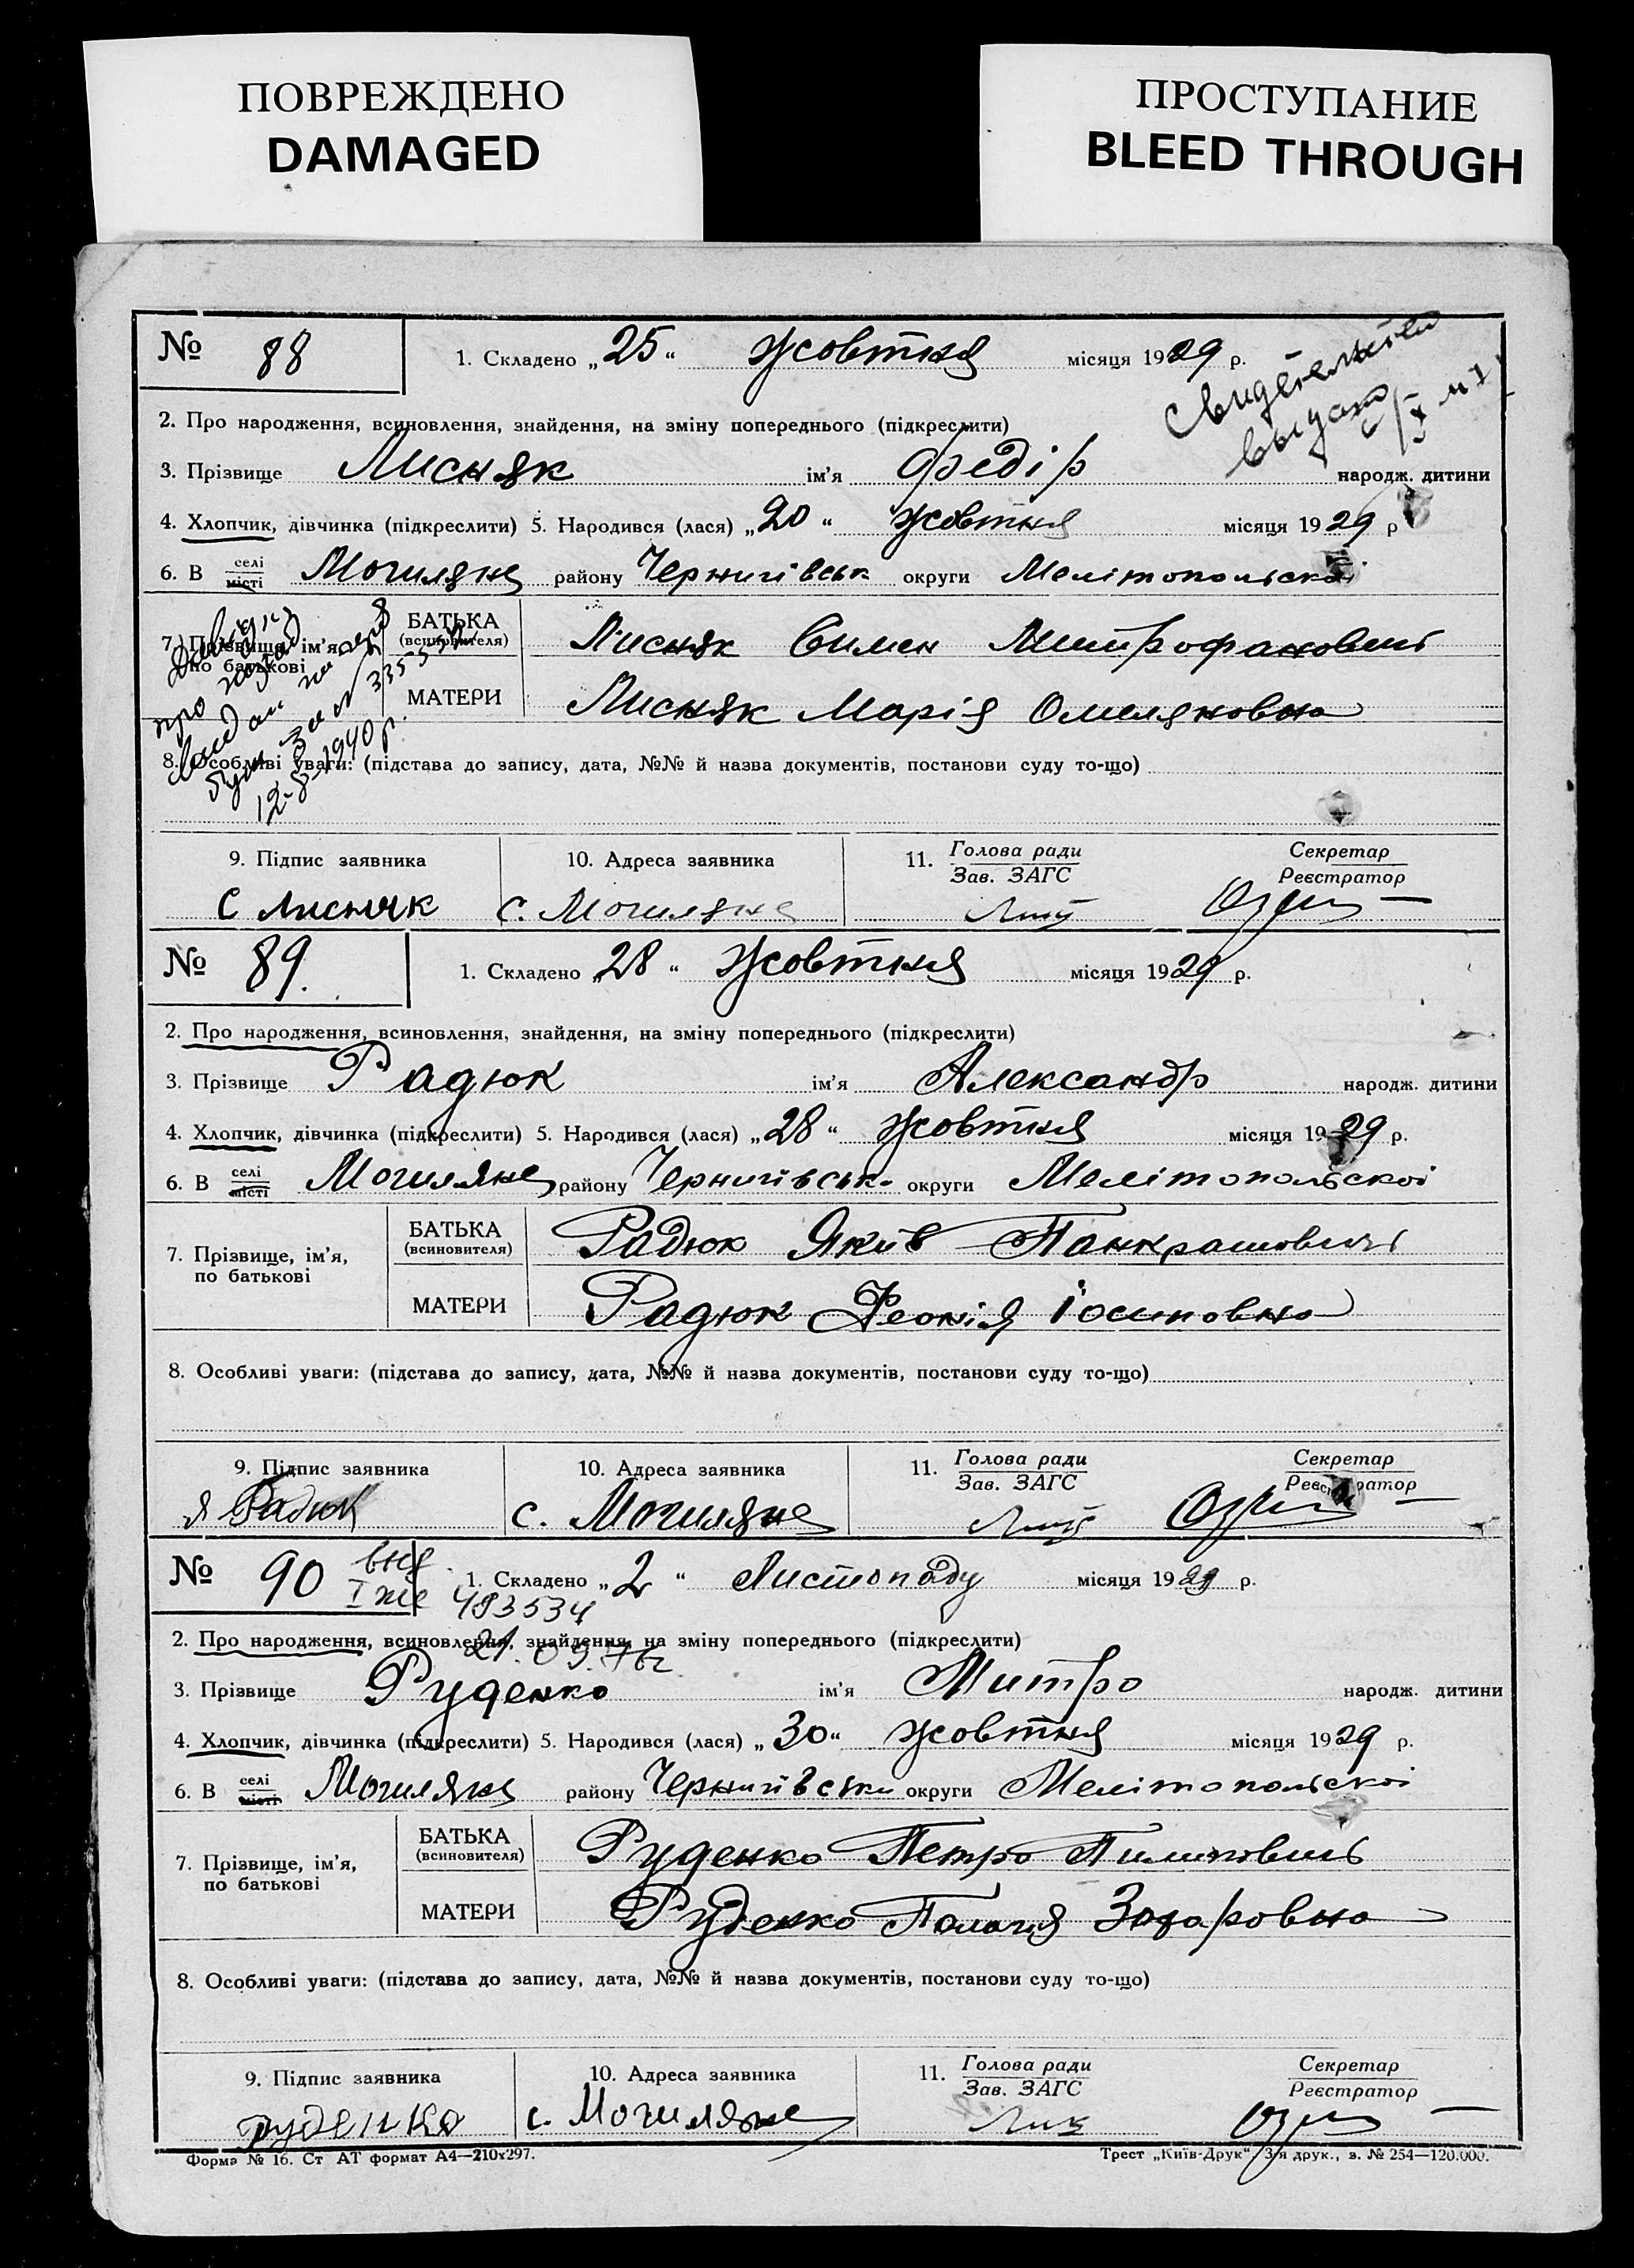 ПОВРЕЖДЕНО
DAMAGED
ПРОСТУПАНИЕ
BLEED THROUGH
№ 88 1. Складено „25“ жовтня місяця 1929 р.
выдано
2. Про народження, всиновлення, знайдення, на зміну попереднього (підкреслити)
3. Прізвище Лисняк ім'я Федір народж. дитини
4. Хлопчик, дівчинка (підкреслити) 5. Народився (лася) „20“ жовтня місяця 1929 р
6. В селі місті Могиляне району Чернигівськ округи Мелітопольскоі
7. Прізвище, ім'я, по батькові
БАТЬКА (всиновителя) Лисняк Симен Митрофанович
МАТЕРИ Лисняк Марія Омеляновна
12-8-1940 р.
8. Особливі уваги: (підстава до запису, дата, №№ й назва документів, постанови суду то-що)
9. Підпис заявника 10. Адреса заявника 11. Голова ради Зав. ЗАГС Секретар Реєстратор
С Лисняк с. Могиляне
№ 89. 1. Складено „28“ жовтня місяця 1929 р.
2. Про народження, всиновлення, знайдення, на зміну попереднього (підкреслити)
3. Прізвище Радюк ім'я Александр народж. дитини
4. Хлопчик, дівчинка (підкреслити) 5. Народився (лася) „28“ жовтня місяця 1929 р.
6. В селі місті Могиляне району Чернигівськ. округи Мелітопольскоі
7. Прізвище, ім'я, по батькові
БАТЬКА (всиновителя) Радюк Яків Панкратович
МАТЕРИ Радюк Феонія Іосиповна
8. Особливі уваги: (підстава до запису, дата, №№ й назва документів, постанови суду то-що)
9. Підпис заявника 10. Адреса заявника 11. Голова ради Зав. ЗАГС Секретар Реєстратор
Я Радюк с. Могиляне
№ 90 1. Складено „2“ Листопаду місяця 1929 р.
483534
2. Про народження, всиновлення, знайдення, на зміну попереднього (підкреслити)
3. Прізвище Руденко ім'я Митро народж. дитини
4. Хлопчик, дівчинка (підкреслити) 5. Народився (лася) „30“ жовтня місяця 1929 р.
6. В селі місті Могиляне району Чернигівськ округи Мелітопольскоі
7. Прізвище, ім'я, по батькові
БАТЬКА (всиновителя) Руденко Петро Пилипович
МАТЕРИ Руденко Палагія Захаровна
8. Особливі уваги: (підстава до запису, дата, №№ й назва документів, постанови суду то-що)
9. Підпис заявника 10. Адреса заявника 11. Голова ради Зав. ЗАГС Секретар Реєстратор
Руденко с. Могиляне
Форма № 16. Ст АТ формат А4—210x297. Трест „Київ-Друк“, 3-я друк., з. № 254—120.000.